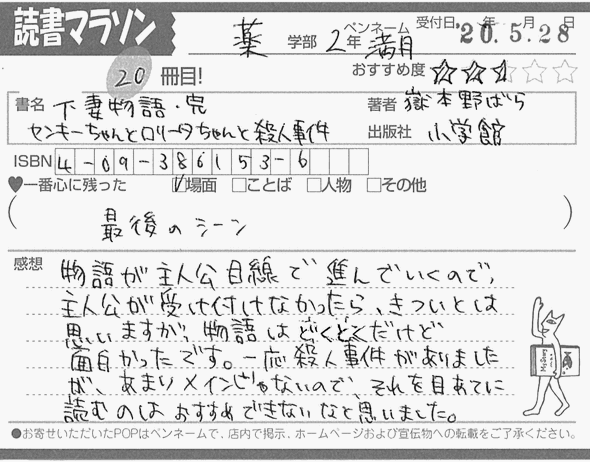 読書マラソン
薬 学部 2年 ペンネーム 満月 受付日 年 月 日 '20.5.28
20 冊目! おすすめ度 ☆☆☆☆☆
書名 下妻物語・完 著者 嶽本野ばら
ヤンキーちゃんとロリータちゃんと殺人事件 出版社 小学館
ISBN 4-09-386153-6
♥一番心に残った ☑場面 □ことば □人物 □その他
( 最後のシーン )
感想 物語が主人公目線で進んでいくので、
主人公が受け付けなかったら、きついとは
思いますが、物語はどくどくだけど
面白かったです。一応殺人事件がありました
が、あまりメインじゃないので、それを目あてに
読むのはおすすめできないなと思いました。
●お寄せいただいたPOPはペンネームで、店内で掲示、ホームページおよび宣伝物への転載をご了承ください。